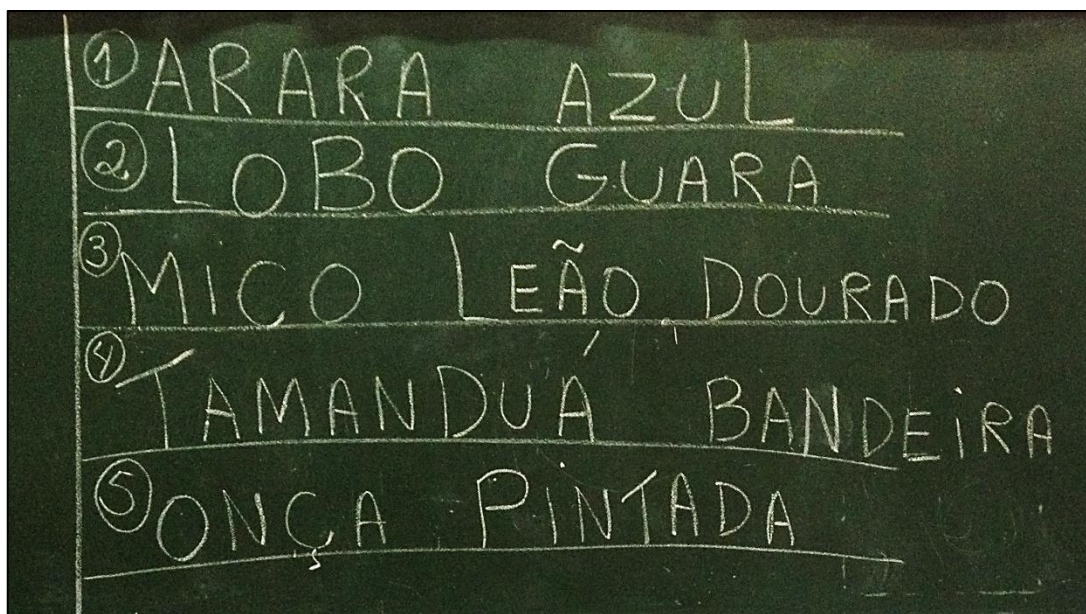 1 ARARA AZUL
2 LOBO GUARA
3 MICO LEÃO DOURADO
4 TAMANDUÁ BANDEIRA
5 ONÇA PINTADA